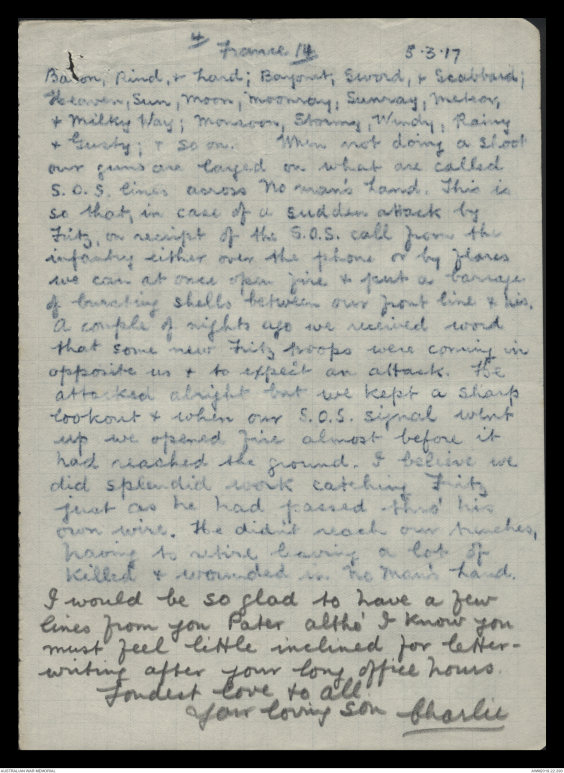 4
France 14 5.3.17
Bacon, Rind, & Lard; Bayonet, Sword, & Scabbard;
Heaven, Sun, Moon, Moonray, Sunray, Meteor,
& Milky Way; Monsoon, Stormy, Windy, Rainy
& Gusty; & so on. When not doing a shoot
our guns are layed on what are called
S.O.S. lines across No man's Land. This is
so that, in case of a sudden attack by
Fritz, on receipt of the S.O.S. call from the
infantry either over the phone or by flares
we can at once open fire & put a barrage
of bursting shells between our front line & his.
A couple of nights ago we received word
that some new Fritz troops were coming in
opposite us & to expect an attack. He
attacked alright but we kept a sharp
lookout & when our S.O.S. signal went
up we opened fire almost before it
had reached the ground. I believe we
did splendid work catching Fritz
just as he had passed thro' his
own wire. He didn't reach our trenches,
having to retire leaving a lot of
killed & wounded in No Man's Land.
I would be so glad to have a few
lines from you Pater altho' I know you
must feel little inclined for letter-
writing after your long office hours.
Fondest love to all.
Your loving son Charlie
AUSTRALIAN WAR MEMORIAL